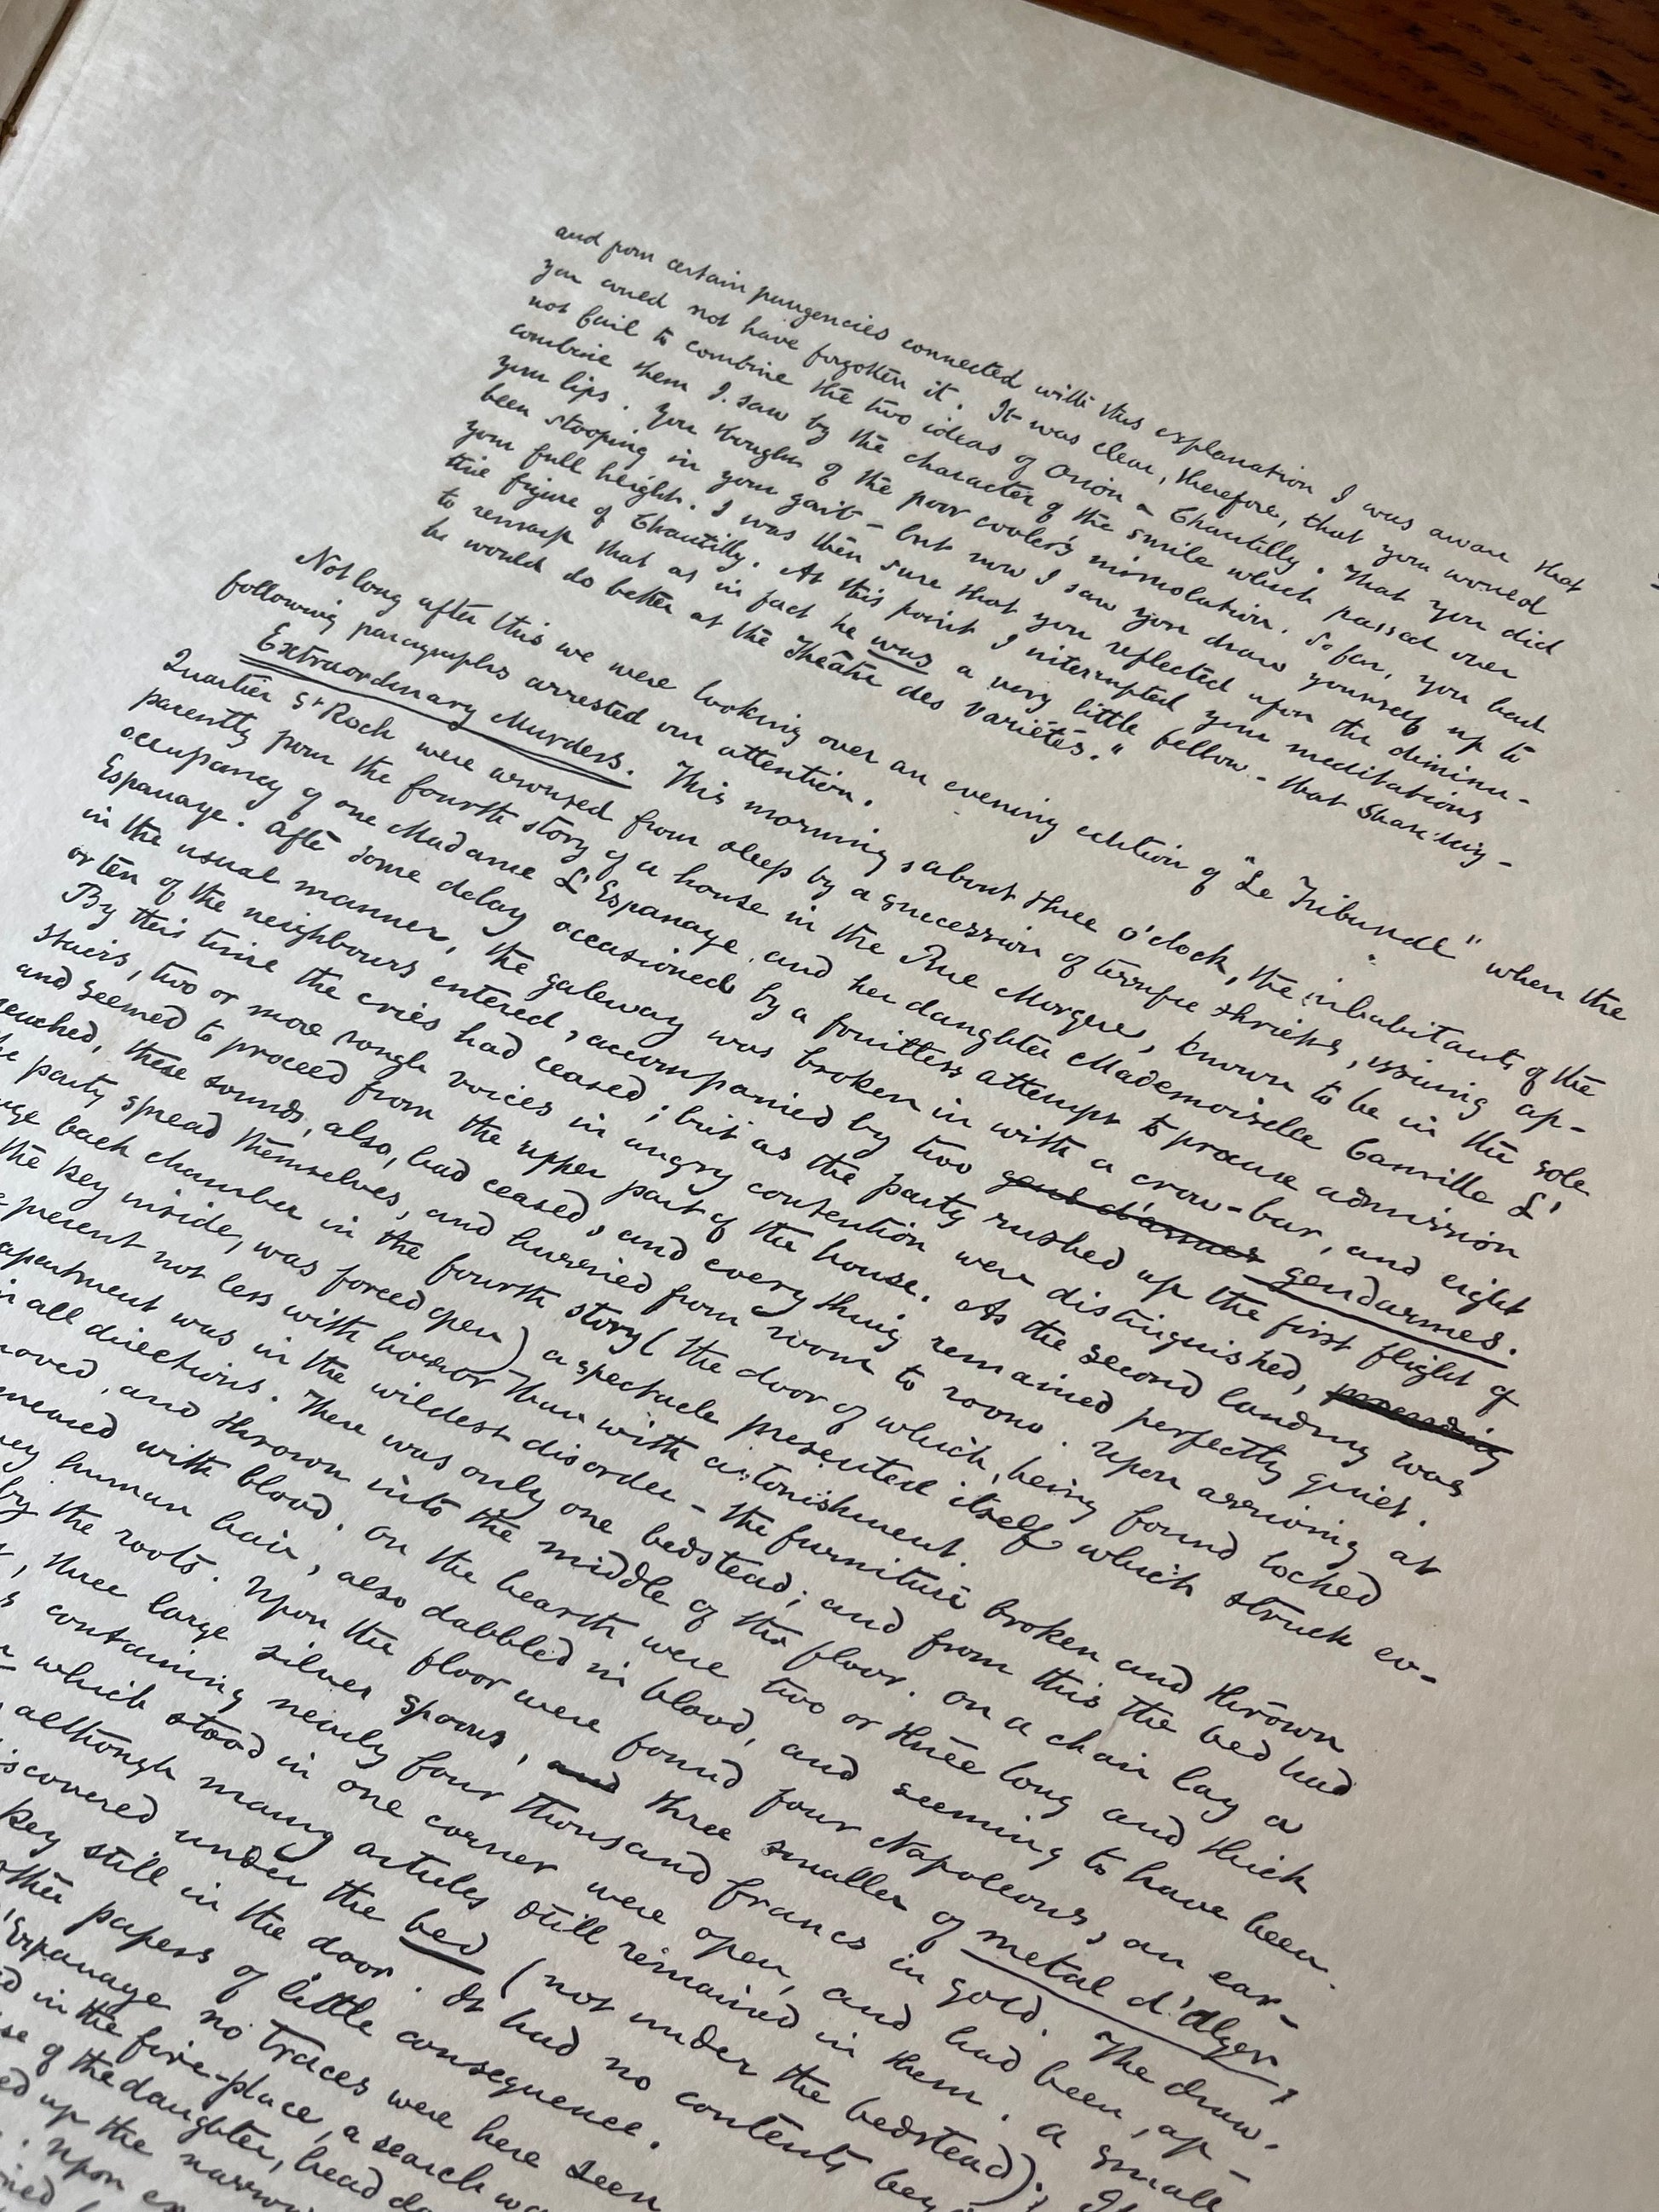 and from certain pungencies connected with this explanation I was aware that
you could not have forgotten it. It was clear, therefore, that you would
not fail to combine the two ideas of Orion & Chantilly. That you did
combine them I saw by the character of the smile which passed over
your lips. You thought of the poor cobler's immolation. So far, you had
been stooping in your gait - but now I saw you draw yourself up to
your full height. I was then sure that you reflected upon the diminu-
tive figure of Chantilly. At this point I interrupted your meditations
to remark that as in fact he was a very little fellow - that Chantilly -
he would do better at the Theâtre des Variétés."
Not long after this we were looking over an evening edition of "Le Tribunal" when the
following paragraphs arrested our attention.
Extraordinary Murders. This morning, about three o'clock, the inhabitants of the
Quartier St Roch were aroused from sleep by a succession of terrific shrieks, issuing ap-
parently from the fourth story of a house in the Rue Morgue, known to be in the sole
occupancy of one Madame L'Espanaye, and her daughter Mademoiselle Camille L'
Espanaye. After some delay occasioned by a fruitless attempt to procure admission
in the usual manner, the gateway was broken in with a crow-bar, and eight
or ten of the neighbours entered, accompanied by two gens d'armes gendarmes.
By this time the cries had ceased; but as the party rushed up the first flight of
stairs, two or more rough voices in angry contention were distinguished,
and seemed to proceed from the upper part of the house. As the second landing was
reached, these sounds, also, had ceased, and every thing remained perfectly quiet.
The party spread themselves, and hurried from room to room. Upon arriving at
large back chamber in the fourth story (the door of which, being found locked
the key inside, was forced open) a spectacle presented itself which struck ev-
present not less with horror than with astonishment.
apartment was in the wildest disorder - the furniture broken and thrown
in all directions. There was only one bedstead; and from this the bed had
moved, and thrown into the middle of the floor. On a chair lay a
smeared with blood. On the hearth were two or three long and thick
grey human hair, also dabbled in blood, and seeming to have been
by the roots. Upon the floor were found four Napoleons, an ear-
three large silver spoons, and three smaller of metal d'Alger,
containing nearly four thousand francs in gold. The draw-
which stood in one corner were open, and had been, ap-
although many articles still remained in them. A small
discovered under the bed (not under the bedstead);
key still in the door. It had no contents
other papers of little consequence.
'Espanaye no traces were here seen
in the fire-place, a search
of the daughter, head
up the narrow
Upon